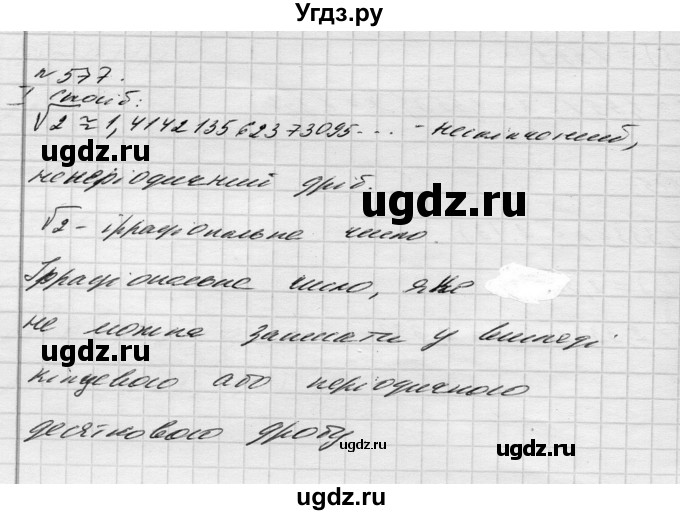 Угдз.ру
№577.
I спосіб:
√2 ≈ 1,414213562373095... - нескінченний,
неперіодичний дріб.
√2 - ірраціональне число.
Ірраціональне число, яке
не можна записати у вигляді
кінцевого або періодичного
десяткового дробу
ugdz.ru
ugdz.ru
ugdz.ru
ugdz.ru
ugdz.ru
ugdz.ru
ugdz.ru